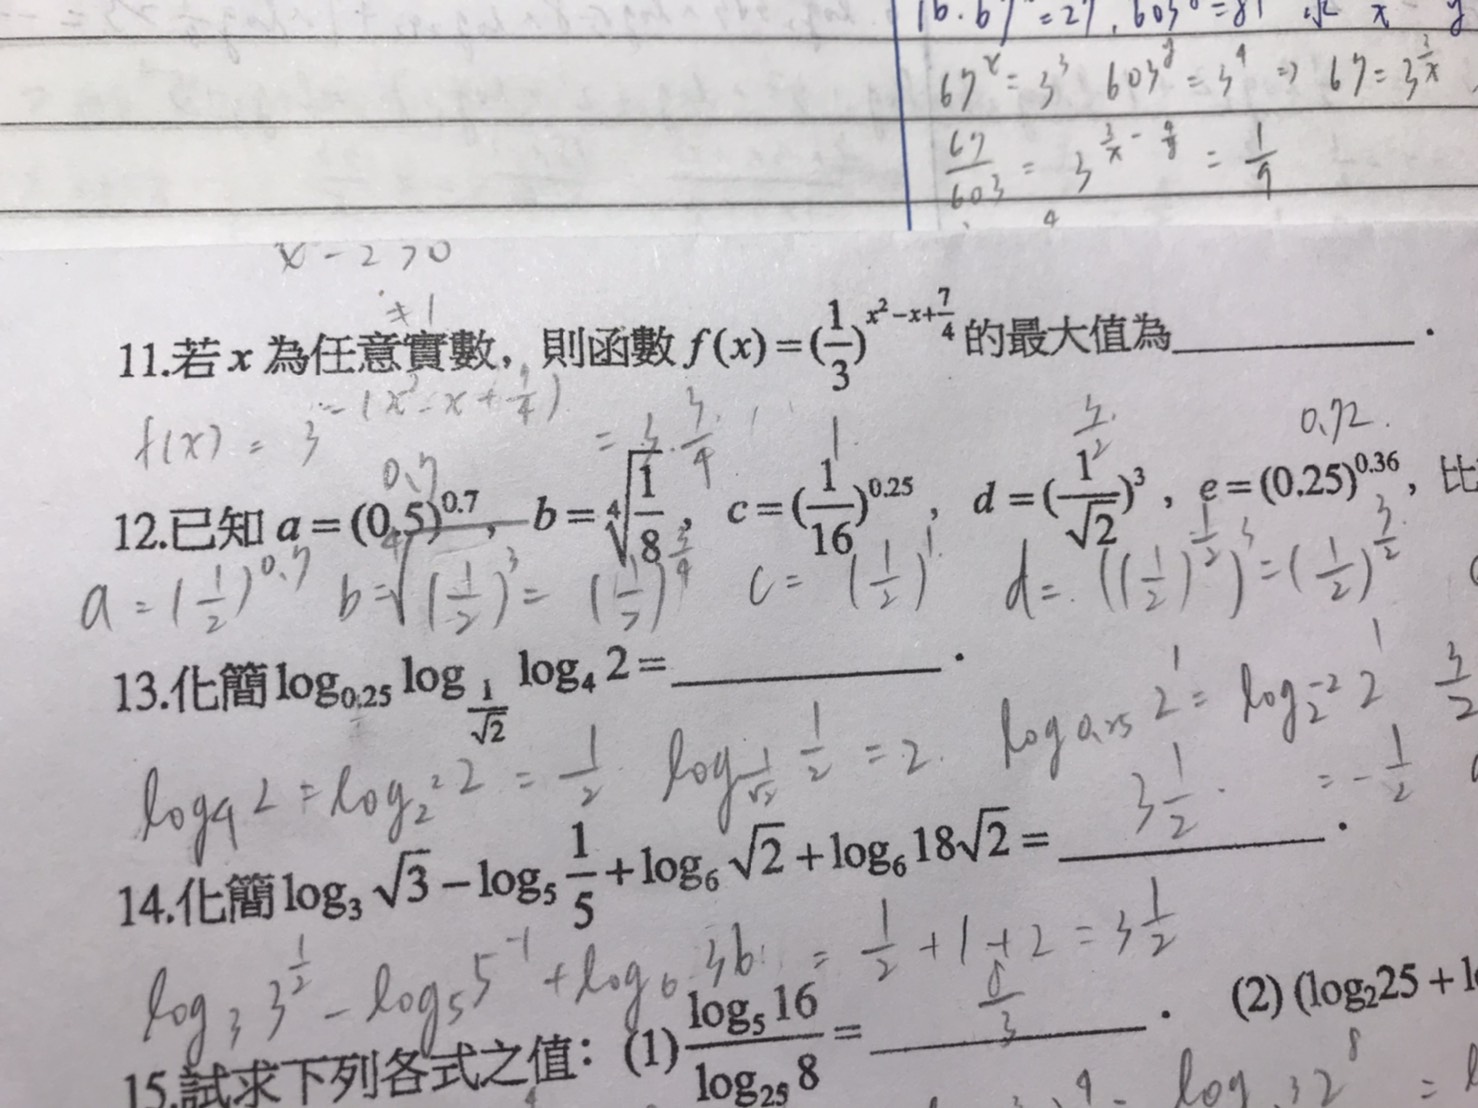 16. 67^x = 27, 603^y = 81
67^x = 3^3 603^y = 3^4 ⇒ 67 = 3^{3/x}
67/603 = 3^{3/x - 4/y} = 1/9
x - 2 > 0
≠ 1
11.若 x 為任意實數，則函數 f(x) = (1/3)^{x²-x+7/4} 的最大值為__________．
f(x) = 3^{-(x²-x+7/4)}
0.7 1 3/2 0.72
12.已知 a = (0.5)^{0.7}，b = ⁴√(1/8)，c = (1/16)^{0.25}，d = (1/√2)³，e = (0.25)^{0.36}，比
a = (1/2)^{0.7} b = ⁴√((1/2)³) = (1/2)^{3/4} c = (1/2)^1 d = ((1/2)^{1/2})^3 = (1/2)^{3/2}
13.化簡 log_{0.25} log_{1/√2} log_4 2 = __________．
log_4 2 = log_{2²} 2 = 1/2 log_{1/√2} 1/2 = 2 log_{0.25} 2^1 = log_{2^{-2}} 2^1
= -1/2
14.化簡 log_3 √3 - log_5 1/5 + log_6 √2 + log_6 18√2 = 3 1/2．
log_3 3^{1/2} - log_5 5^{-1} + log_6 36 = 1/2 + 1 + 2 = 3 1/2
15.試求下列各式之值：(1) log_5 16 / log_{25} 8 = 8/3． (2) (log_2 25 + l